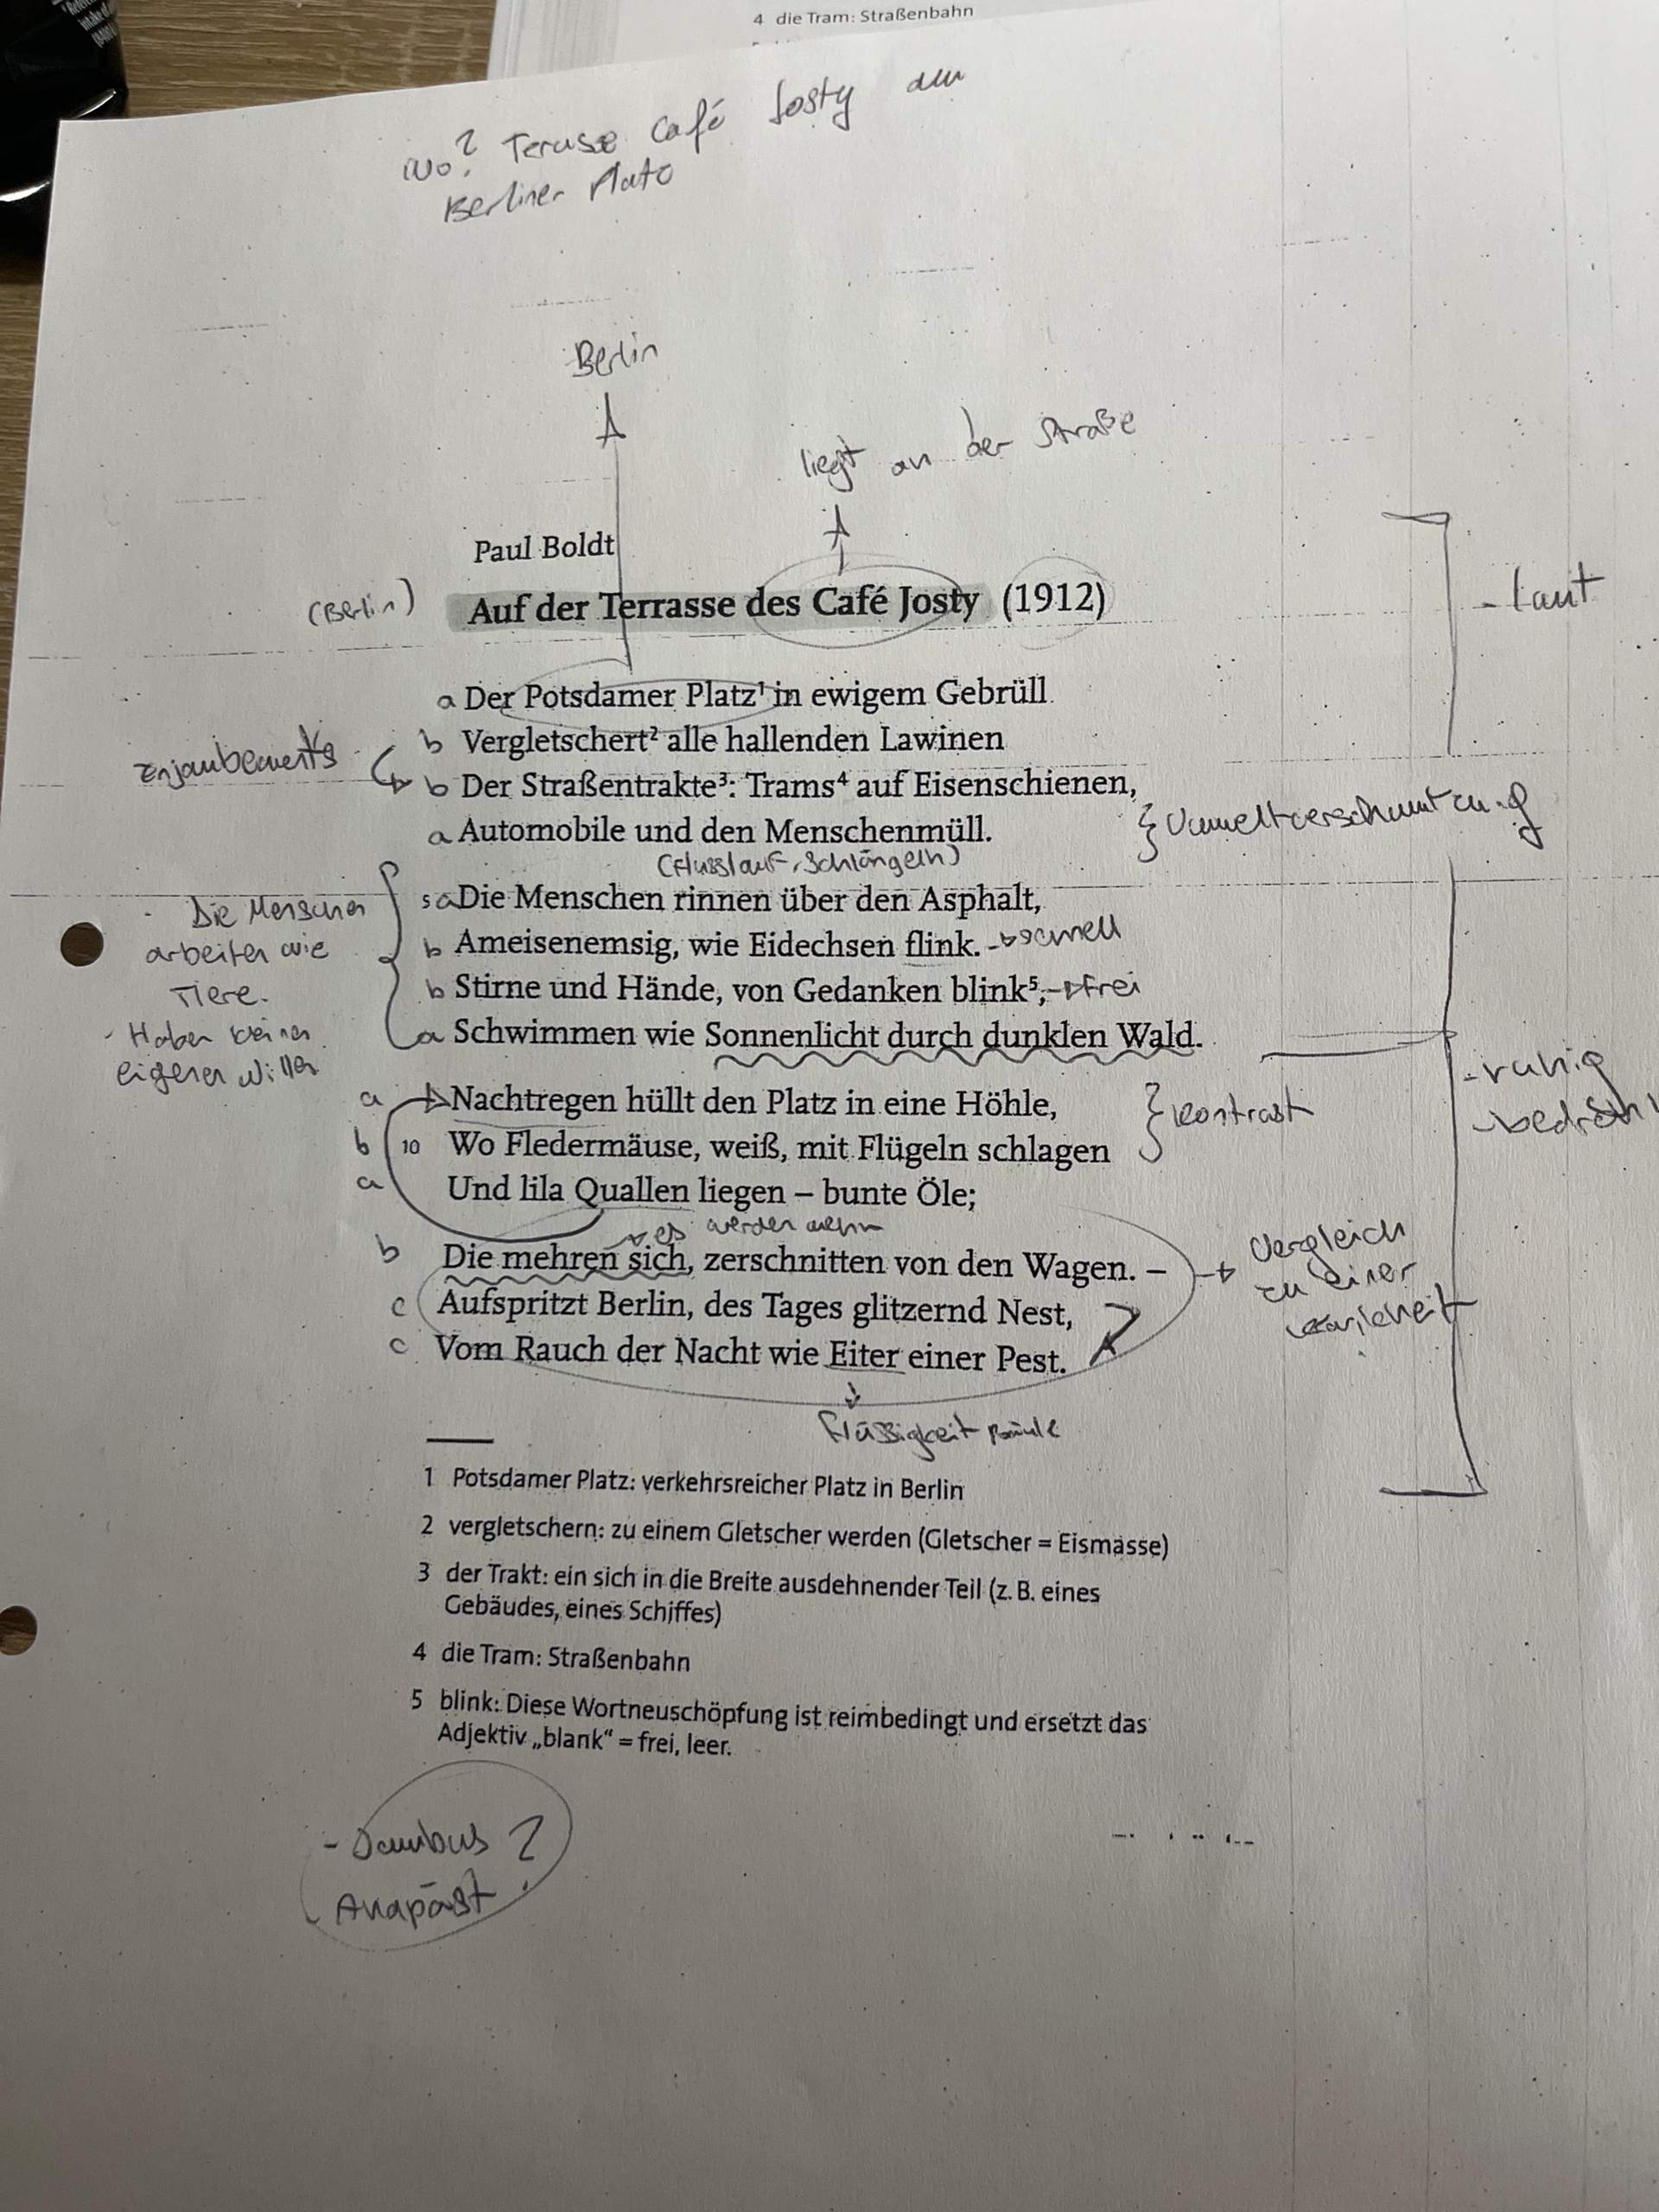 4 die Tram: Straßenbahn
wo? Terusse Café Josty am
Berliner Platz
Berlin
liegt an der Straße
Paul Boldt
(Berlin) Auf der Terrasse des Café Josty (1912)
- laut
a Der Potsdamer Platz¹ in ewigem Gebrüll
b Vergletschert² alle hallenden Lawinen
Enjambements
b Der Straßentrakte³: Trams⁴ auf Eisenschienen,
a Automobile und den Menschenmüll.
(Flusslauf, Schlängeln)
- Die Menschen arbeiten wie Tiere.
- Haben keinen eigenen Willen
5 a Die Menschen rinnen über den Asphalt,
b Ameisenemsig, wie Eidechsen flink. → schnell
b Stirne und Hände, von Gedanken blink⁵, → frei
a Schwimmen wie Sonnenlicht durch dunklen Wald.
- ruhig
a Nachtregen hüllt den Platz in eine Höhle,
Kontrast
b 10 Wo Fledermäuse, weiß, mit Flügeln schlagen
a Und lila Quallen liegen – bunte Öle;
→ es werden mehr
b Die mehren sich, zerschnitten von den Wagen. –
→ Vergleich
zu einer
c Aufspritzt Berlin, des Tages glitzernd Nest,
c Vom Rauch der Nacht wie Eiter einer Pest.
Flüssigkeit
1 Potsdamer Platz: verkehrsreicher Platz in Berlin
2 vergletschern: zu einem Gletscher werden (Gletscher = Eismasse)
3 der Trakt: ein sich in die Breite ausdehnender Teil (z. B. eines
Gebäudes, eines Schiffes)
4 die Tram: Straßenbahn
5 blink: Diese Wortneuschöpfung ist reimbedingt und ersetzt das
Adjektiv „blank“ = frei, leer.
- Jambus ?
- Anapäst